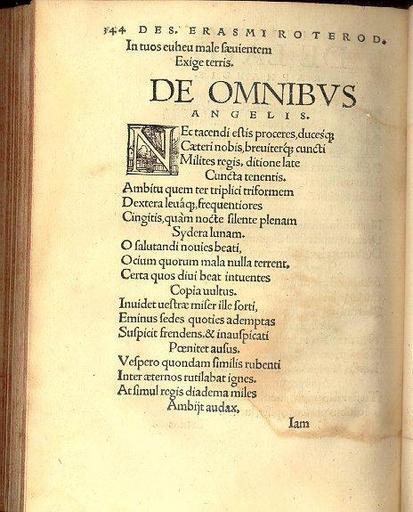 344 DES. ERASMI ROTEROD.
In tuos euheu male sæuientem
Exige terris.
DE OMNIBVS
ANGELIS.
NEc tacendi estis proceres, ducesq́;
Cæteri nobis, breuiterq́; cuncti
Milites regis, ditione late
Cuncta tenentis.
Ambitu quem ter triplici triformem
Dextera leuáq;, frequentiores
Cingitis, quàm nocte silente plenam
Sydera lunam.
O salutandi nouies beati,
Ocium quorum mala nulla terrent,
Certa quos diui beat intuentes
Copia uultus.
Inuidet uestræ miser ille sorti,
Eminus sedes quoties ademptas
Suspicit frendens, & inauspicati
Pœnitet ausus.
Vespero quondam similis rubenti
Inter æternos rutilabat ignes.
At simul regis diadema miles
Ambijt audax,
Iam